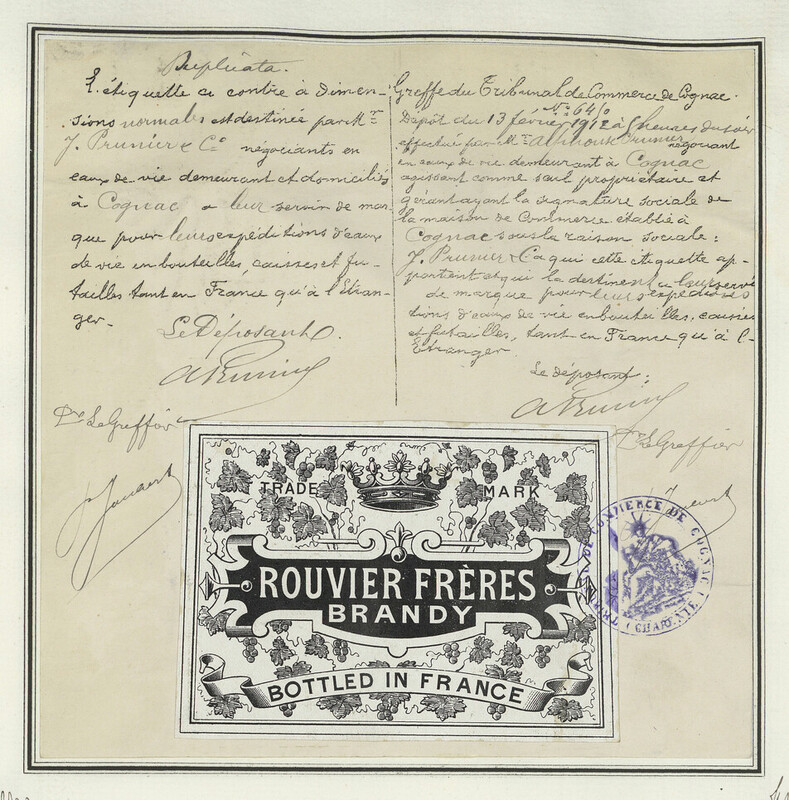 Duplicata.
L'étiquette ci contre à dimen-
sions normales est destinée par Mr
J. Prunier & Cie négociants en
eaux-de-vie demeurant et domiciliés
à Cognac a leur servir de mar
que pour leurs expéditions d'eaux
de vie en bouteilles, caisses et fu-
tailles tant en France qu'à l'Etran-
ger.
Le Déposant.
A Prunier
Pr Le Greffier
Greffe du Tribunal de Commerce de Cognac.
No 640
Dépot du 13 février 1912 à 5 heures du soir
effectué par Mr Alphonse Prunier négociant
en eaux de vie demeurant à Cognac
agissant comme seul propriétaire et
gérant ayant la signature sociale de
la maison de Commerce établie à
Cognac sous la raison sociale:
J. Prunier & Co qui cette étiquette ap-
partient et qui la destinent a leur servir
de marque pour leurs expédi
tions d'eaux de vie en bouteilles, caisses
et futailles, tant en France qu'à l'-
Etranger.
Le déposant:
A Prunier
Pr Le Greffier
TRADE MARK
ROUVIER FRÈRES
BRANDY
BOTTLED IN FRANCE
DE COMMERCE DE COGNAC
(CHARENTE)